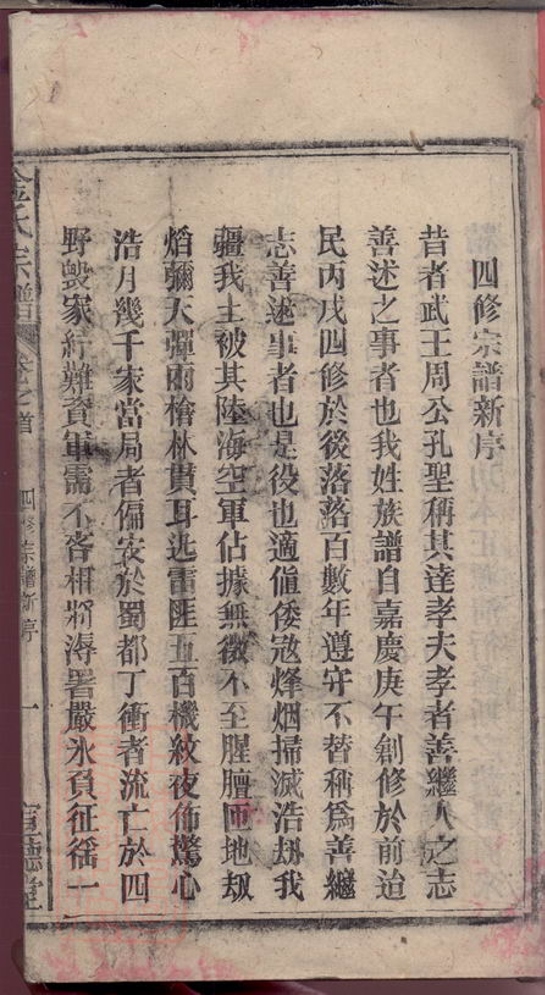 四修宗譜新序
昔者武王周公孔聖稱其達孝夫孝者善繼人之志
善述之事者也我姓族譜自嘉慶庚午創修於前迨
民丙戌四修於後落落百數年遵守不替稱爲善繼
志善述事者也是役也適值倭寇烽烟掃滅浩刼我
疆我土被其陸海空軍佔據無微不至腥膻匝地刼
熖彌天彈雨槍林貫耳迅雷匪五百機紋夜佈驚心
浩月幾千家當局者偏安於蜀都丁衝者流亡於四
野毀家紓難資軍需不吝相將溽暑嚴氷負征徭一
氏宗譜
卷之首
四修宗譜新序
一
德堂